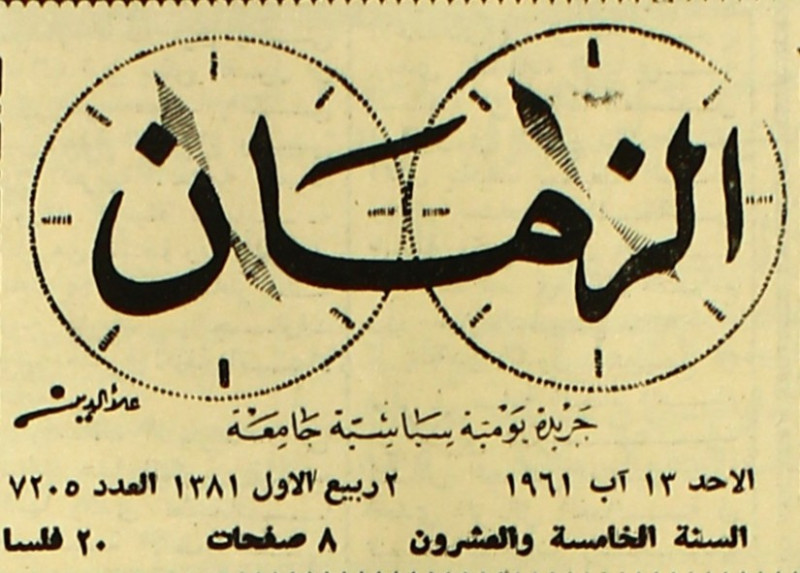 الزمان
علاء الدين
جريدة يومية سياسية جامعة
الاحد ١٣ آب ١٩٦١ ٢ ربيع الاول ١٣٨١ العدد ٧٢٠٥
السنة الخامسة والعشرون ٨ صفحات ٢٠ فلسا